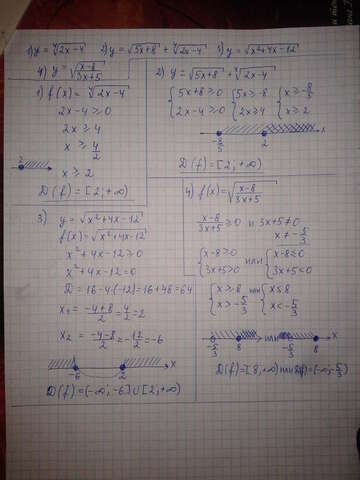 1) y = ⁸√2x-4  2) y = √5x+8 + ⁸√2x-4  3) y = √x²+4x-12
4) y = √(x-8)/(3x+5)
1) f(x) = √2x-4
2x-4 ≥ 0
2x ≥ 4
x ≥ 4/2
2
x ≥ 2
D(f) = [2; +∞)
2) y = √5x+8 + √2x-4
{ 5x+8 ≥ 0 { 5x ≥ -8 { x ≥ -8/5
{ 2x-4 ≥ 0 { 2x ≥ 4 { x ≥ 2
-8/5 2 x
D(f) = [2; +∞)
3) y = √x²+4x-12
f(x) = √x²+4x-12
x²+4x-12 ≥ 0
x²+4x-12 = 0
D = 16-4·(-12) = 16+48 = 64
x₁ = (-4+8)/2 = 4/2 = 2
x₂ = (-4-8)/2 = -12/2 = -6
-6 2 x
D(f) = (-∞; -6] ∪ [2; +∞)
4) f(x) = √(x-8)/(3x+5)
(x-8)/(3x+5) ≥ 0 и 3x+5 ≠ 0
x ≠ -5/3
{ x-8 ≥ 0 или { x-8 ≤ 0
{ 3x+5 > 0 { 3x+5 < 0
{ x ≥ 8 или { x ≤ 8
{ x > -5/3 { x < -5/3
-5/3 8 или -5/3 8 x
D(f) = [8; +∞) или D(f) = (-∞; -5/3)